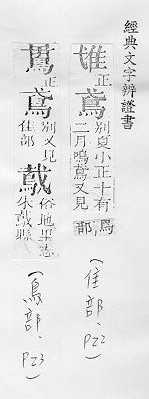 經典文字辨證書
正
鳶
別夏小正十有
二月鳴鳶又見
鳥部
(隹部、P22)
正
鳶
別又見
隹部
俗地里志
縣
(鳥部、P23)